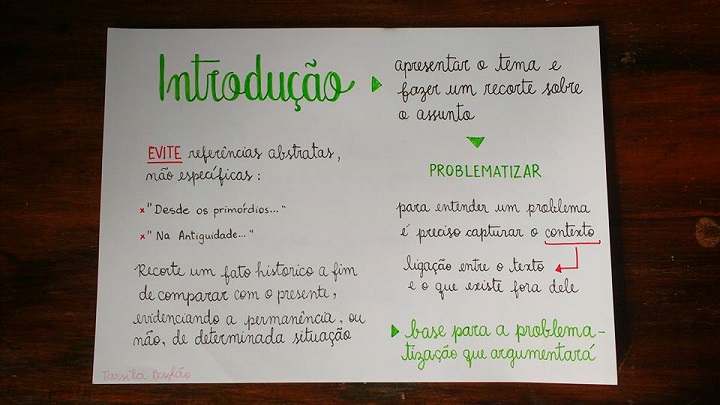 Introdução
apresentar o tema e
fazer um recorte sobre
o assunto
PROBLEMATIZAR
para entender um problema
é preciso capturar o contexto
ligação entre o texto
e o que existe fora dele
base para a problema-
tização que argumentará
EVITE referências abstratas,
não específicas:
x "Desde os primórdios..."
x "Na Antiguidade..."
Recorte um fato historico a fim
de comparar com o presente,
evidenciando a permanência, ou
não, de determinada situação
Tarsila